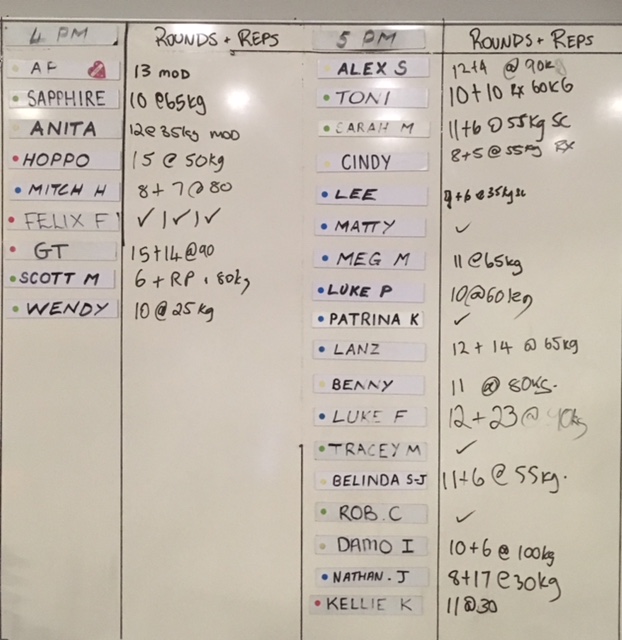 4 PM ROUNDS + REPS
AF 13 MOD
SAPPHIRE 10 @65kg
ANITA 12@35kg MOD
HOPPO 15 @ 50kg
MITCH H 8+7@80
FELIX F ✓/✓/✓
GT 15+14@90
SCOTT M 6+RP 80kg
WENDY 10@25kg
5 PM ROUNDS + REPS
ALEX S 12+4 @90kg
TONI 10+10 RX 60KG
SARAH M 11+6@55kg SC
CINDY 8+5@55kg RX
LEE 9+6@35kg sc
MATTY ✓
MEG M 11@65kg
LUKE P 10@60kg
PATRINA K ✓
LANZ 12+14 @65kg
BENNY 11 @80KG.
LUKE F 12+23@ kg
TRACEY M ✓
BELINDA S-J 11+6@55kg.
ROB.C ✓
DAMO I 10+6@100kg
NATHAN.J 8+17@30kg
KELLIE K 11@30